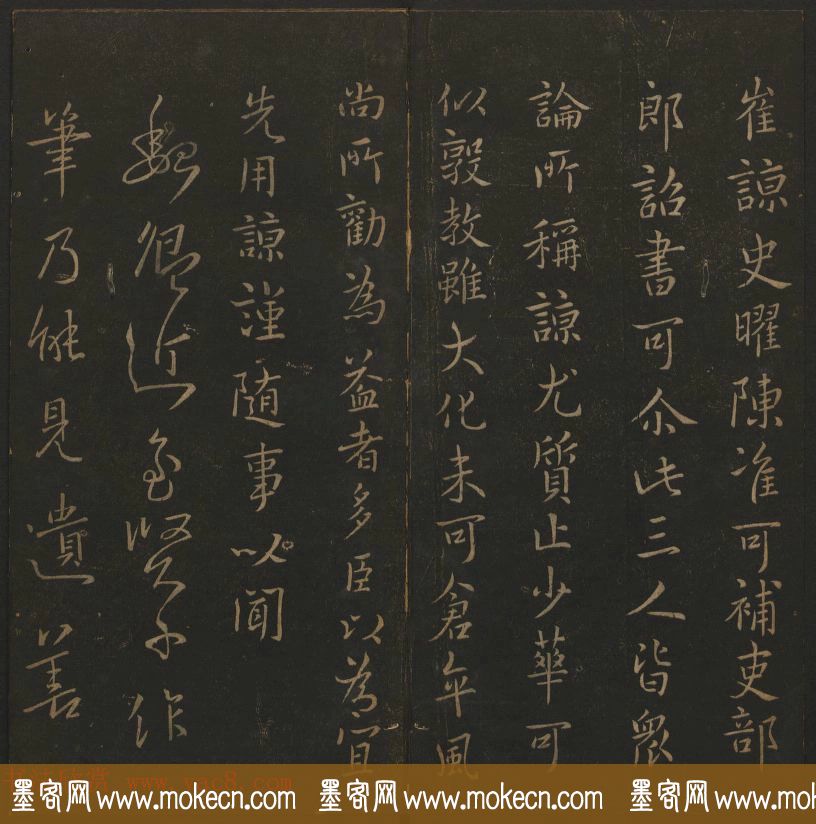 崔諒史曜陳准可補吏部
郎詔書可尒此三人皆眾
論所稱諒尤質止少華可
似敦教雖大化未可倉卒風
尚所勸為益者多臣以為宜
先用諒謹隨事以聞
近 賢 作
筆乃能見遺善
书法欣赏 www.yac8.com
墨客网 www.mokecn.com 墨客网 www.mokecn.com 墨客网 www.mokecn.com